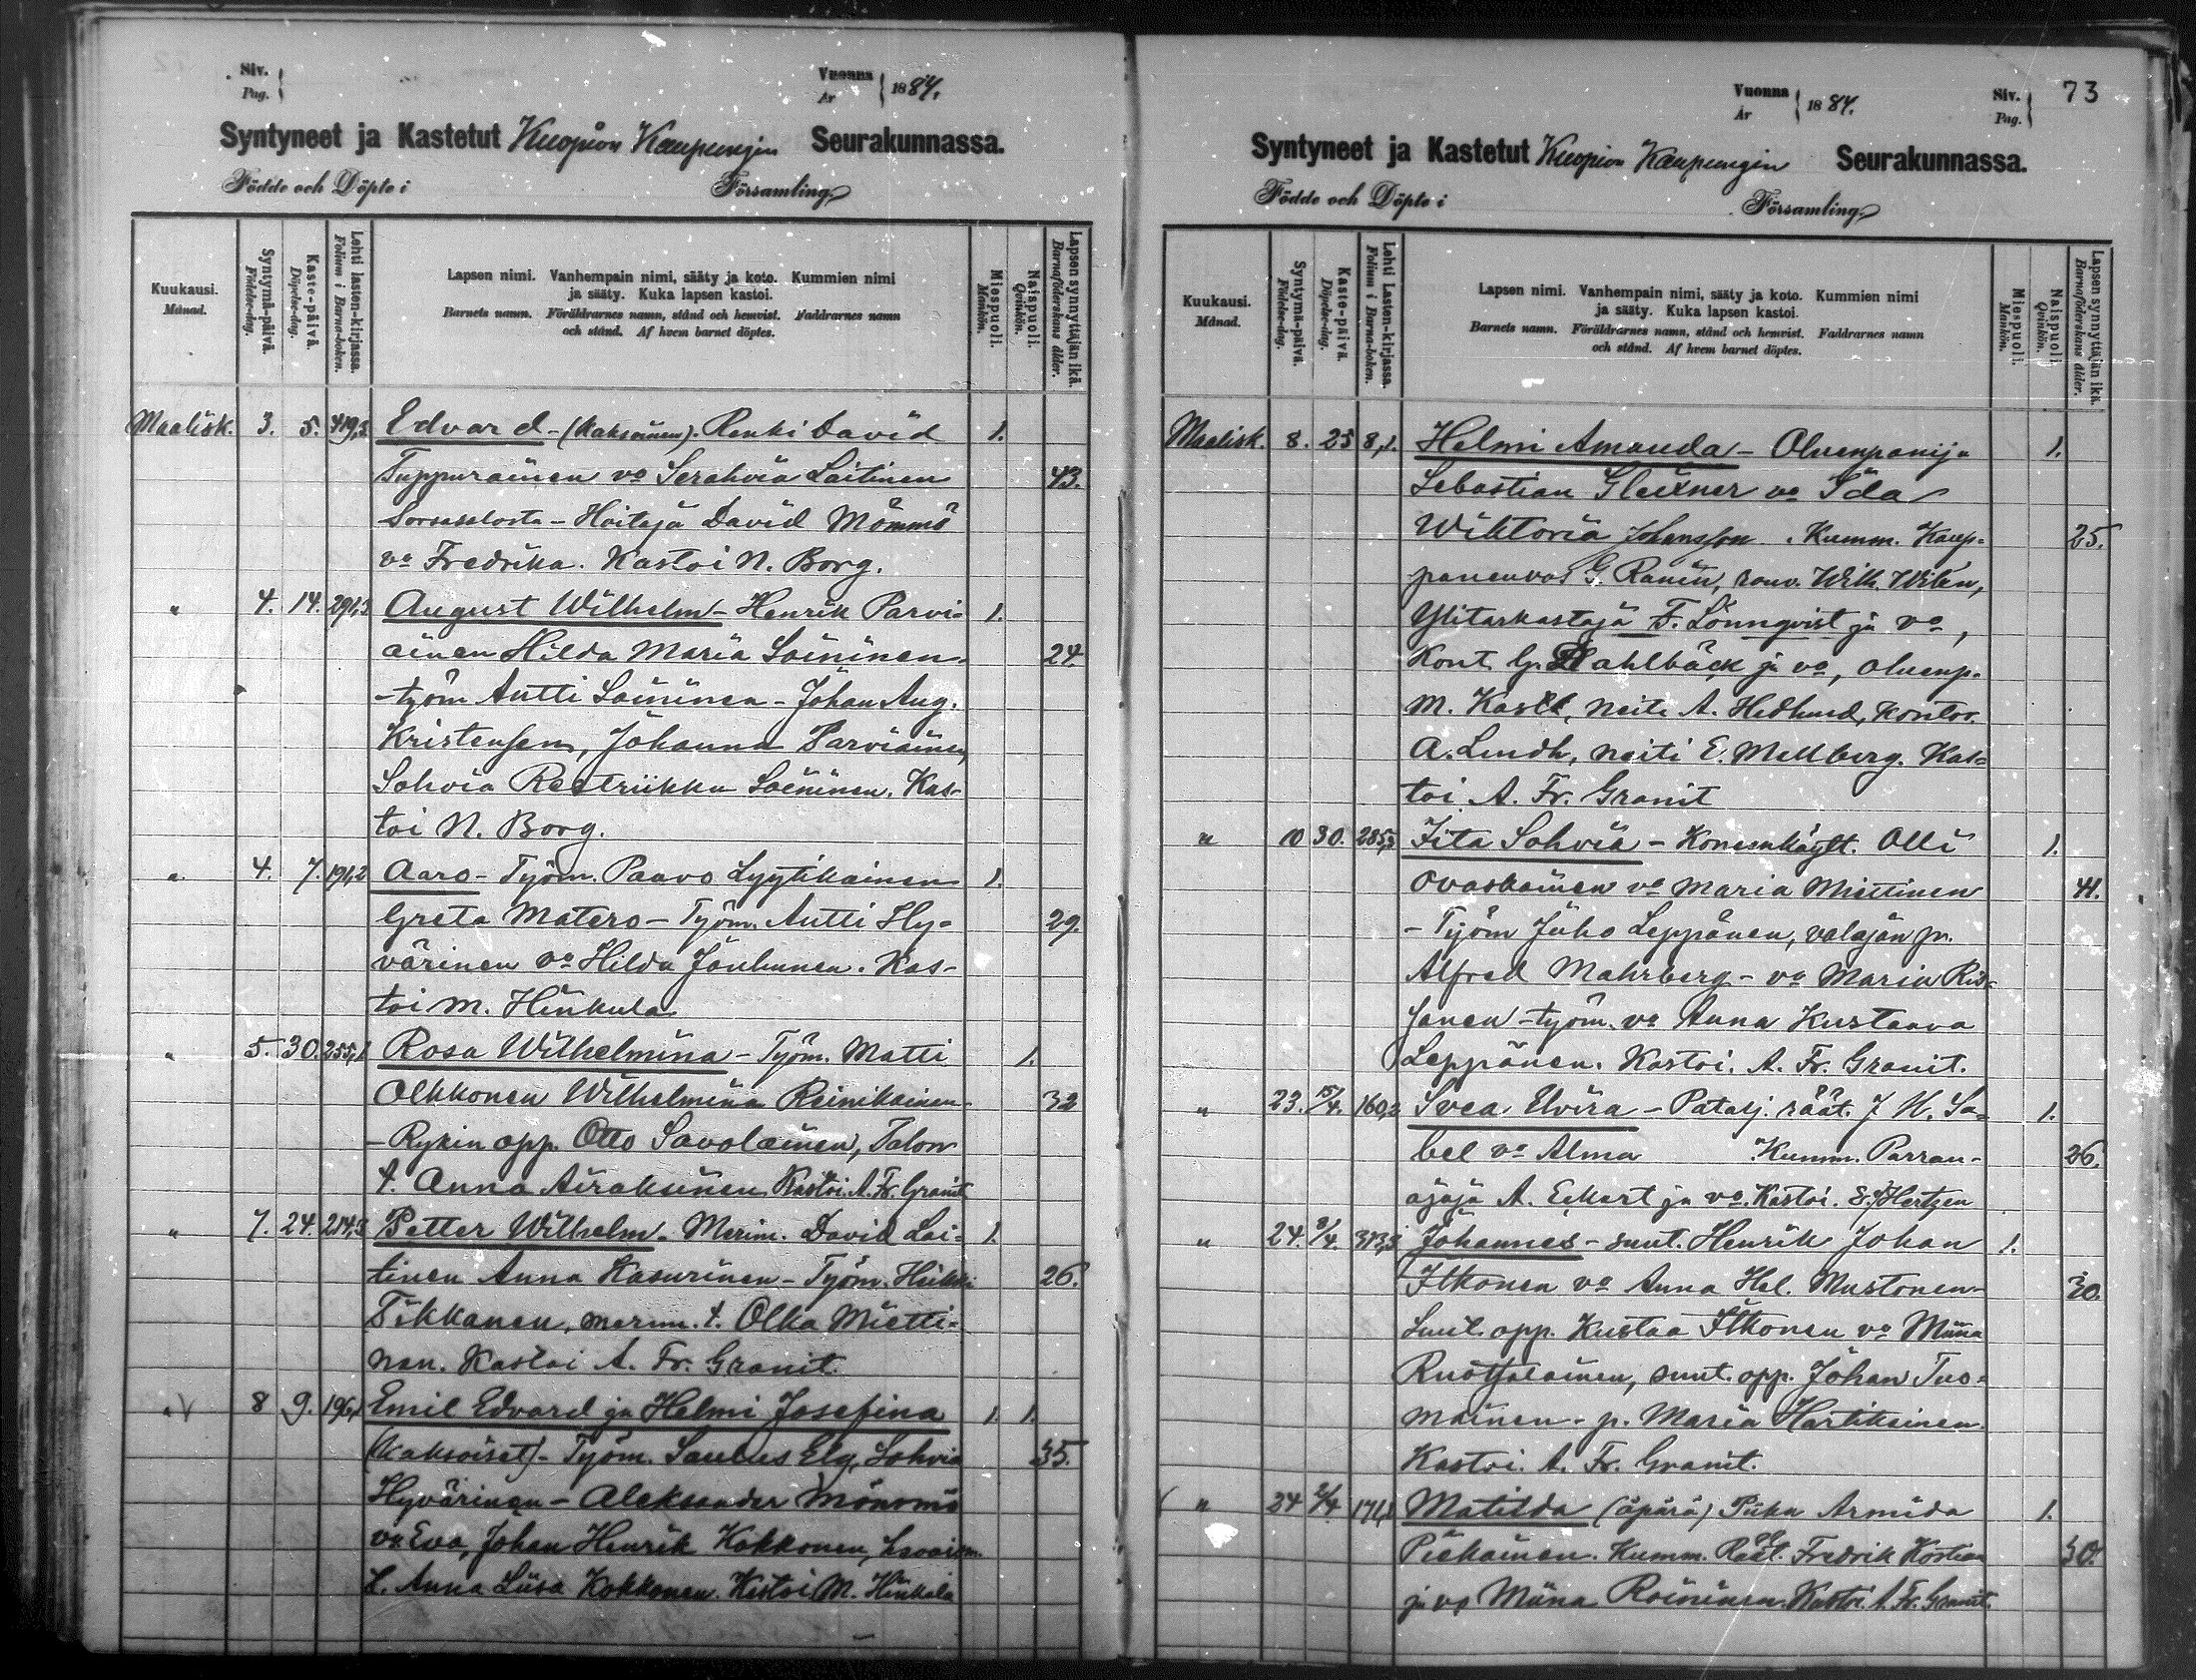 Siv.
Pag.
Vuonna
År
1884.
Syntyneet ja Kastetut Kuopion Kaupungin Seurakunnassa.
Födde och Döpte i Församling
Kuukausi.
Månad.
Syntymä-päivä.
Födelse-dag.
Kaste-päivä.
Döpelse-dag.
Lehti lasten-kirjassa.
Folium i Barna-boken.
Lapsen nimi. Vanhempain nimi, sääty ja koto. Kummien nimi
ja sääty. Kuka lapsen kastoi.
Barnets namn. Föräldrarnes namn, stånd och hemvist. Faddrarnes namn
och stånd. Af hvem barnet döptes.
Miespuoli.
Mankön.
Naispuoli.
Qvinkön.
Lapsen synnyttäjän ikä.
Barnaföderskans ålder.
Maalisk. 3. 5. 419,3 Edvard - (kaksoinen). Renki David 1.
Tuppurainen vo Serahvia Laitinen 43.
Sorsasalosta - Hoitaja David Mömmö
vo Fredrika. Kastoi N. Borg.
" 4. 14. 291,3 August Wilhelm - Henrik Parvi- 1.
ainen Hilda Maria Soininen 24
- työm Antti Soininen - Johan Aug.
Kristensen, Johanna Parviainen,
Sohvia Reetriikka Soininen. Kas-
toi N. Borg.
" 4. 7. 191,2 Aaro - Työm. Paavo Lyytikainen 1.
Greta Matero - Työm. Antti Hy- 29.
värinen vo Hilda Jänhunen. Kas-
toi M. Hinkula
" 5. 30. 255,1 Rosa Wilhelmina - Työm. Matti 1.
Olkkonen Wilhelmina Reinikainen 32
- Rykin opp. Otto Savolainen, Talon
t. Anna Airaksinen Kastoi A. Fr. Granit
" 7. 24. 214,3 Petter Wilhelm. Merim. David Lai- 1.
tinen Anna Kasurinen - Työm. Heikki 26.
Tikkanen, merim. t. Olka Mietti-
nen. Kastoi A. Fr. Granit.
" V 8 9. 196,1 Emil Edvard ja Helmi Josefina 1. 1.
(kaksoiset) - Työm. Saulus Elg, Sohvia 35.
Hyvärinen - Aleksander Mönömö
vo Eva, Johan Henrik Kokkonen,
t. Anna Liisa Kokkonen. Kastoi M. Hinkula
Vuonna
År
1884.
Siv.
Pag.
73
Syntyneet ja Kastetut Kuopion Kaupungin Seurakunnassa.
Födde och Döpte i Församling
Kuukausi.
Månad.
Syntymä-päivä.
Födelse-dag.
Kaste-päivä.
Döpelse-dag.
Lehti Lasten-kirjassa.
Folium i Barna-boken.
Lapsen nimi. Vanhempain nimi, sääty ja koto. Kummien nimi
ja sääty. Kuka lapsen kastoi.
Barnets namn. Föräldrarnes namn, stånd och hemvist. Faddrarnes namn
och stånd. Af hvem barnet döptes.
Miespuoli.
Mankön.
Naispuoli.
Qvinkön.
Lapsen synnyttäjän ikä.
Barnaföderskans ålder.
Maalisk. 8. 25 8,1. Helmi Amanda - Oluenpanija 1.
Sebastian Gleixner vo Ida
Wiktoria Johansson. Kumm. Kaup- 25.
panenvos G. Ranin, rouv. Wilh. Wilén,
Ylitarkastaja F. Lönnqvist ja vo,
Kont. G. Dahlbäck ja vo, oluenp.
M. Kastl, neiti A. Hedlund, kontor.
A. Lindh, neiti E. Mellberg. Kas-
toi A. Fr. Granit
" 10 30. 285,3 Iita Sohvia - Koneenkäytt. Olli 1.
Ovaskainen vo Maria Miettinen 41.
- Työm Juho Leppänen, valajan p.
Alfred Mahrberg - vo Maria Ris-
sanen - työm. vo Anna Kustaava
Leppänen. Kastoi. A. Fr. Granit.
" 23. 15/4. 160,2 Svea Elvira - Patasj. räät. J H. Sa- 1.
bel vo Alma Kumm. Parran-
ajaja A. Eckert ja vo. Kastoi. Hertzen 26.
" 24. 8/4. 313,3 Johannes - suut. Henrik Johan 1.
Itkonen vo Anna Hel. Mustonen 30.
Suut. opp. Kustaa Itkonen vo Miina
Ruotsalainen, suut. opp. Johan Tuo-
mainen - p. Maria Hartikainen.
Kastoi. A. Fr. Granit.
" 24 2/4 171,1 Matilda (äpärä) Piika Armida 1.
Piekainen. Kumm. Räät. Fredrik Kostian 30.
ja vo Miina Roininen. Kastoi A. Fr. Granit.